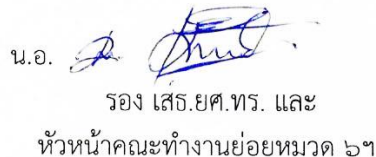 น.อ.
รอง เสธ.ยศ.ทร. และ
หัวหน้าคณะทำงานย่อยหมวด ๖ฯ